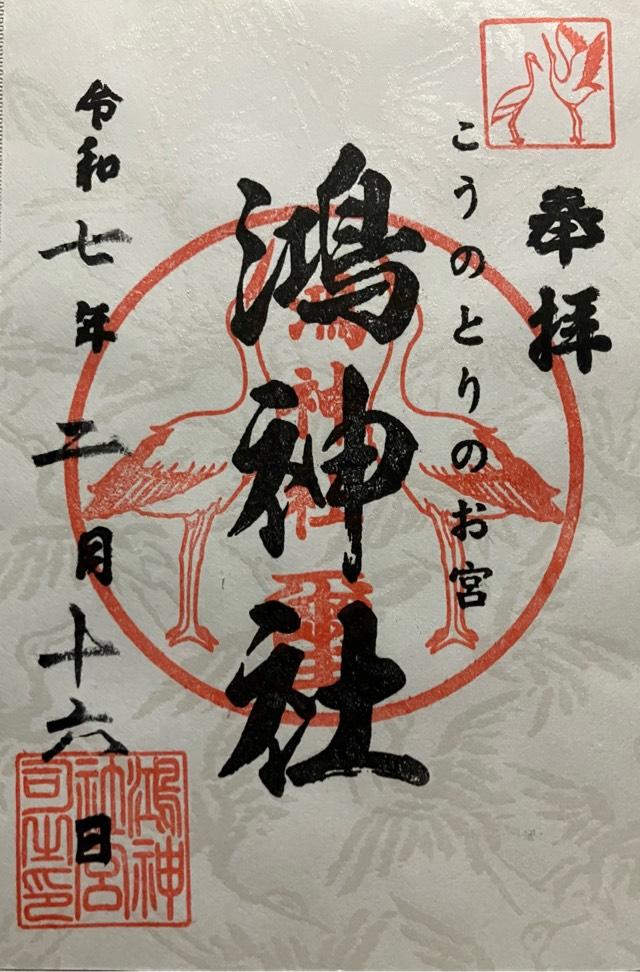 奉拝
こうのとりのお宮
鴻神社
鴻神社璽
令和七年二月十六日
鴻神
社宮
司之印